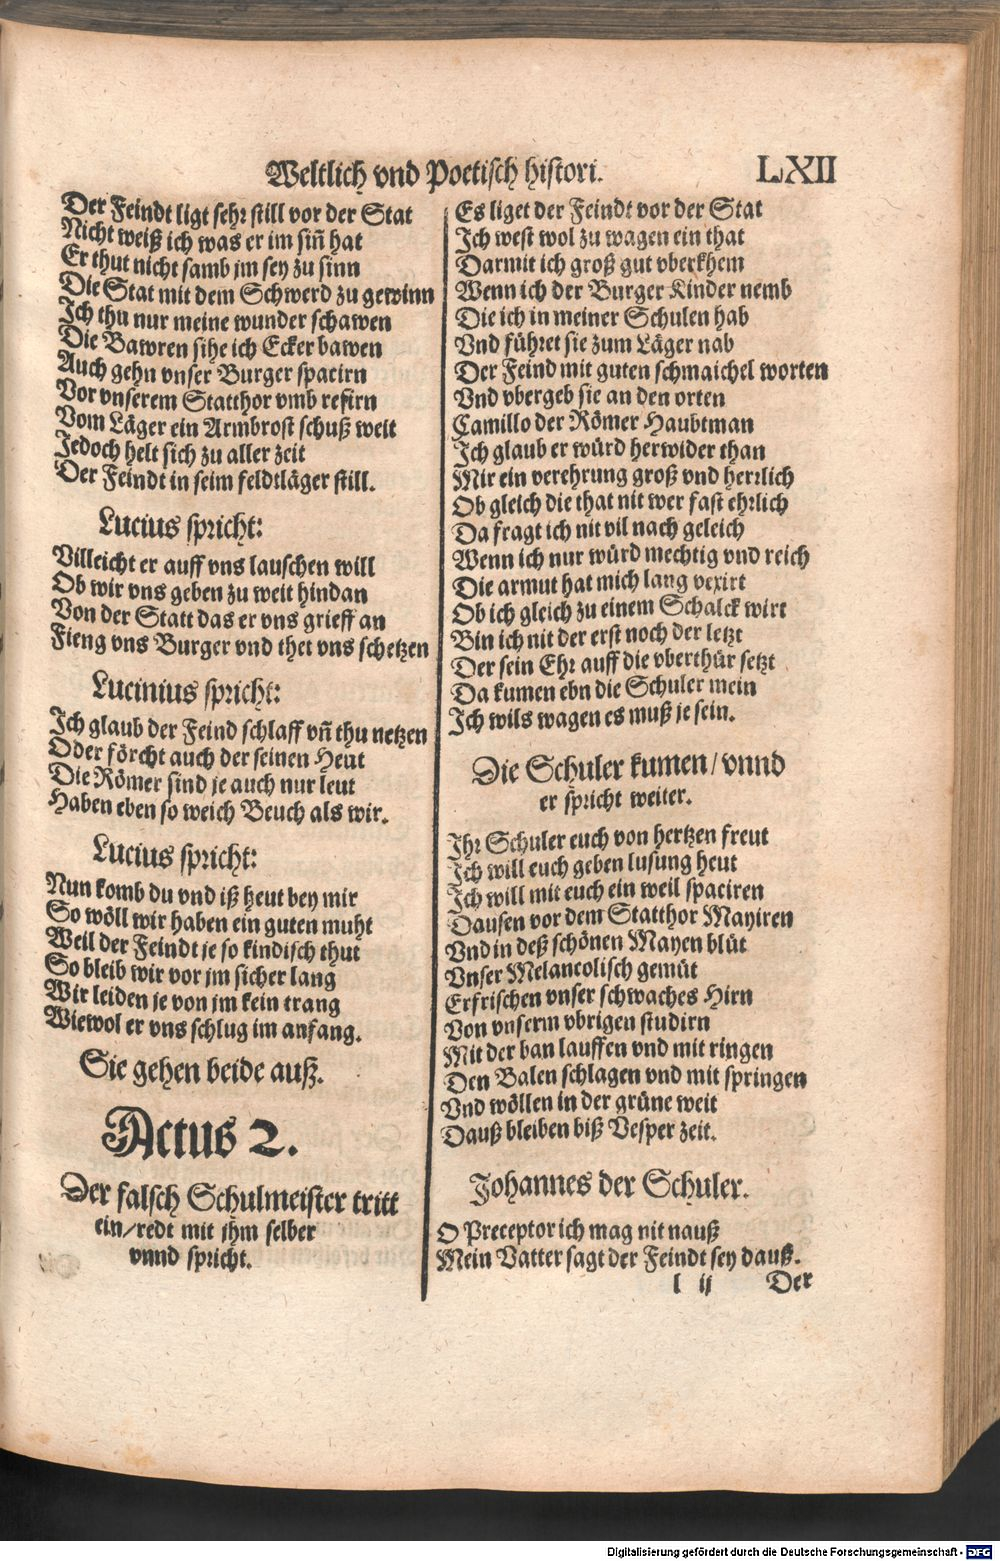 Weltlich vnd Poetisch histori.
LXII
Der Feindt ligt sehr still vor der Stat
Nicht weiß ich was er im siñ hat
Er thut nicht samb jm sey zu sinn
Die Stat mit dem Schwerd zu gewinn
Ich thu nur meine wunder schawen
Die Bawren sihe ich Ecker bawen
Auch gehn vnser Burger spacirn
Vor vnserem Statthor vmb refirn
Vom Läger ein Armbrost schuß weit
Jedoch helt sich zu aller zeit
Der Feindt in seim feldtläger still.
Lucius spricht:
Villeicht er auff vns lauschen will
Ob wir vns geben zu weit hindan
Von der Statt das er vns grieff an
Fieng vns Burger vnd thet vns schetzen
Lucinius spricht:
Ich glaub der Feind schlaff vñ thu netzen
Oder förcht auch der seinen Heut
Die Römer sind je auch nur leut
Haben eben so weich Beuch als wir.
Lucius spricht:
Nun komb du vnd iß heut bey mir
So wöll wir haben ein guten muht
Weil der Feindt je so kindisch thut
So bleib wir vor jm sicher lang
Wir leiden je von jm kein trang
Wiewol er vns schlug im anfang.
Sie gehen beide auß.
Actus 2.
Der falsch Schulmeister tritt
ein/redt mit jhm selber
vnnd spricht.
Es liget der Feindt vor der Stat
Ich west wol zu wagen ein that
Darmit ich groß gut vberkhem
Wenn ich der Burger Kinder nemb
Die ich in meiner Schulen hab
Vnd führet sie zum Läger nab
Der Feind mit guten schmaichel worten
Vnd vbergeb sie an den orten
Camillo der Römer Haubtman
Ich glaub er würd herwider than
Mir ein verehrung groß vnd herrlich
Ob gleich die that nit wer fast ehrlich
Da fragt ich nit vil nach geleich
Wenn ich nur würd mechtig vnd reich
Die armut hat mich lang vexirt
Ob ich gleich zu einem Schalck wirt
Bin ich nit der erst noch der letzt
Der sein Ehr auff die vberthür setzt
Da kumen ebn die Schuler mein
Ich wils wagen es muß je sein.
Die Schuler kumen/vnnd
er spricht weiter.
Ihr Schuler euch von hertzen freut
Ich will euch geben lusung heut
Ich will mit euch ein weil spaciren
Dausen vor dem Statthor Mayiren
Vnd in deß schönen Mayen blüt
Vnser Melancolisch gemüt
Erfrischen vnser schwaches Hirn
Von vnserm vbrigen studirn
Mit der ban lauffen vnd mit ringen
Den Balen schlagen vnd mit springen
Vnd wöllen in der grüne weit
Dauß bleiben biß Vesper zeit.
Johannes der Schuler.
O Preceptor ich mag nit nauß
Mein Vatter sagt der Feindt sey dauß.
l ij Der
Digitalisierung gefördert durch die Deutsche Forschungsgemeinschaft - DFG